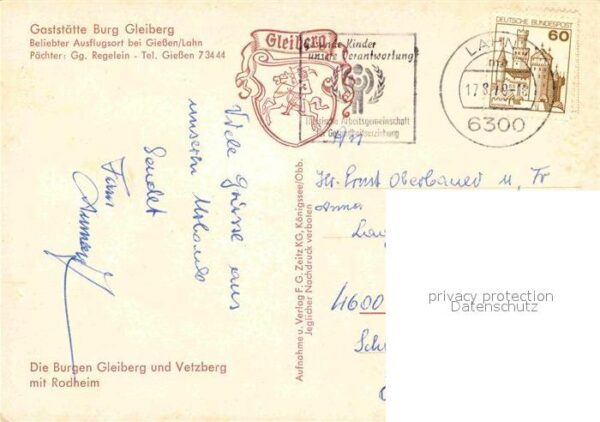 Gaststätte Burg Gleiberg
Beliebter Ausflugsort bei Gießen/Lahn
Pächter: Gg. Regelein - Tel. Gießen 7 34 44
Gleiberg
Gesunde Kinder
unsere Verantwortung
Hessische Arbeitsgemeinschaft
für Gesundheitserziehung
LAHN
17.8.79-18
6300
DEUTSCHE BUNDESPOST
60
Viele Grüsse aus
unserem Urlaub
Sendet
Fam.
Aufnahme u. Verlag F. G. Zeitz KG, Königssee/Obb.
Jeglicher Nachdruck verboten
Hr. Ernst Oberbauer u. Fr
Anna
4600
privacy protection
Datenschutz
Die Burgen Gleiberg und Vetzberg
mit Rodheim